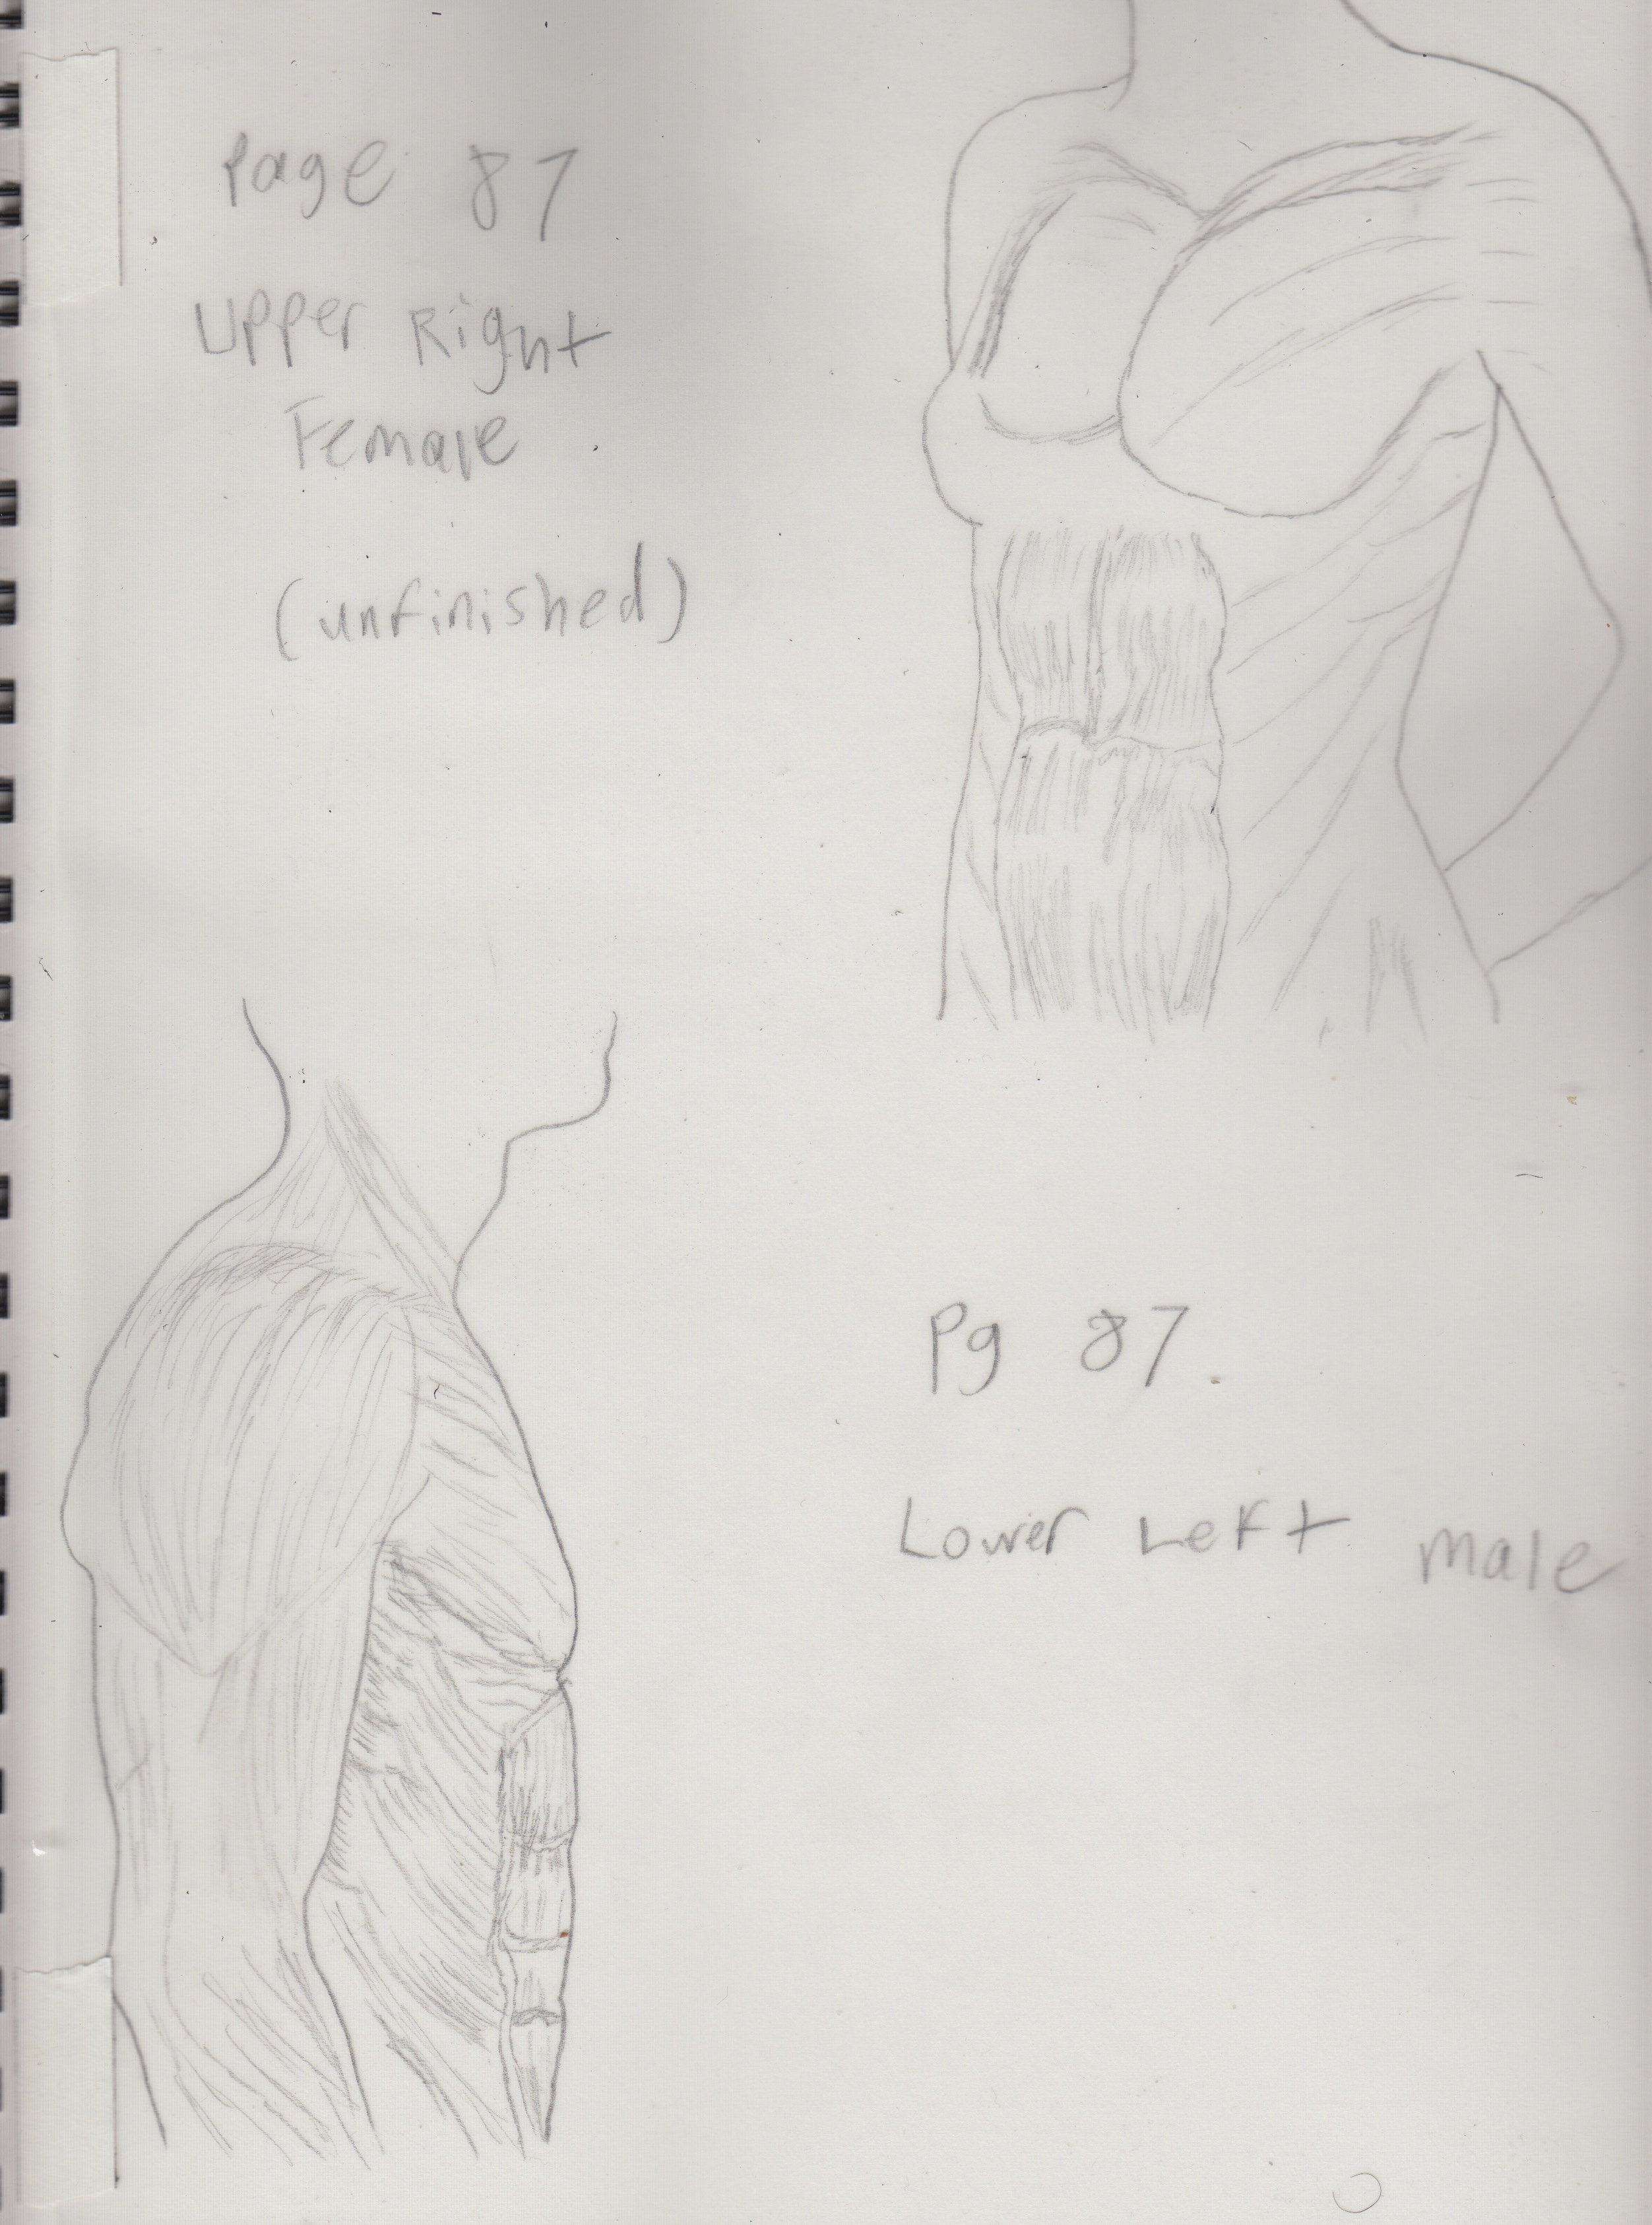 Page 87
Upper Right
Female
(unfinished)
Pg 87.
Lower Left male